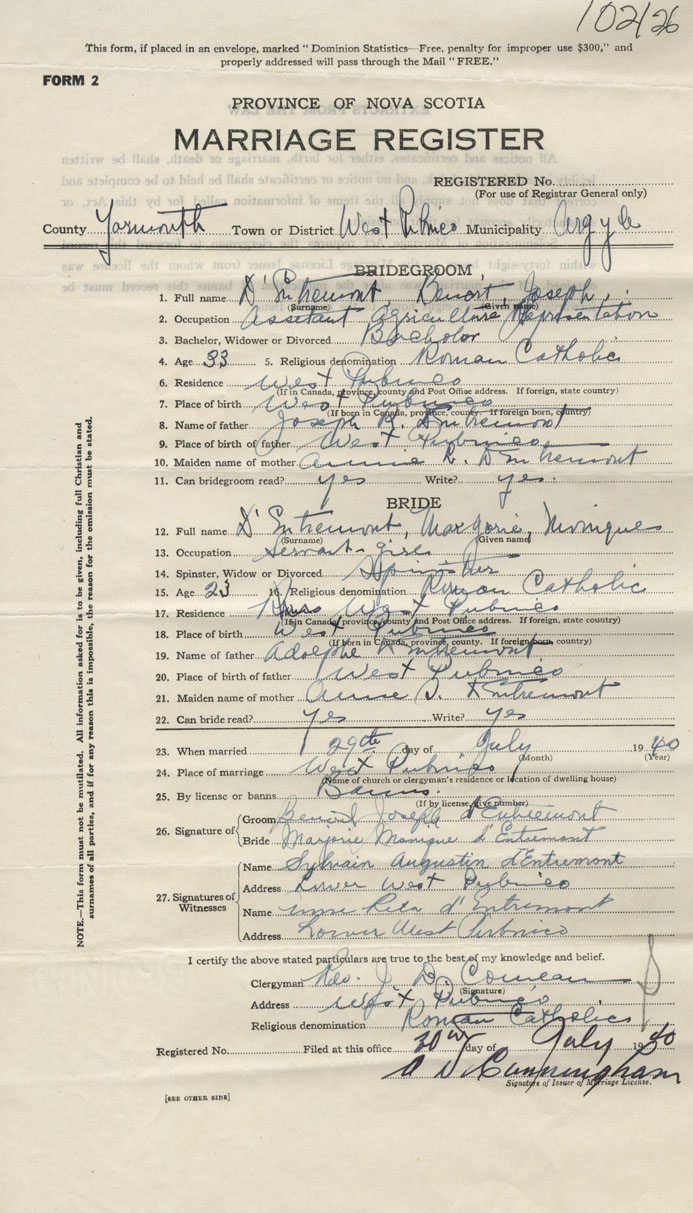 102/26
This form, if placed in an envelope, marked "Dominion Statistics—Free, penalty for improper use $300," and
properly addressed will pass through the Mail "FREE."
FORM 2
PROVINCE OF NOVA SCOTIA
MARRIAGE REGISTER
REGISTERED No.
(For use of Registrar General only)
County Yarmouth Town or District West Pubnico Municipality Argyle
BRIDEGROOM
1. Full name D'Entremont, Benoit, Joseph,
(Surname) (Given name)
2. Occupation Assistant Agriculture Representation
3. Bachelor, Widower or Divorced Bachelor
4. Age 33 5. Religious denomination Roman Catholic
6. Residence West Pubnico
(If in Canada, province, county and Post Office address. If foreign, state country)
7. Place of birth West Pubnico
(If born in Canada, province, county. If foreign born, country)
8. Name of father Joseph R. D'Entremont
9. Place of birth of father West Pubnico
10. Maiden name of mother Annie L. D'Entremont
11. Can bridegroom read? yes Write? yes.
BRIDE
12. Full name D'Entremont, Marjorie, Monique
(Surname) (Given name)
13. Occupation Servant-girl
14. Spinster, Widow or Divorced Spinster
15. Age 23 16. Religious denomination Roman Catholic
17. Residence West Pubnico
(If in Canada, province, county and Post Office address. If foreign, state country)
18. Place of birth West Pubnico
(If born in Canada, province, county. If foreign born, country)
19. Name of father Adolphe D'Entremont
20. Place of birth of father West Pubnico
21. Maiden name of mother Annie S. D'Entremont
22. Can bride read? yes Write? yes
23. When married 29th day of July 1940
(Month) (Year)
24. Place of marriage West Pubnico
(Name of church or clergyman's residence or location of dwelling house)
25. By license or banns Banns.
(If by license, give number)
26. Signature of Groom Benoit Joseph d'Entremont
Bride Marjorie Monique d'Entremont
27. Signatures of Witnesses Name Sylvain Augustin d'Entremont
Address Lower West Pubnico
Name Rita d'Entremont
Address Lower West Pubnico
I certify the above stated particulars are true to the best of my knowledge and belief.
Clergyman Rev. J. D. Comeau
(Signature)
Address West Pubnico
Religious denomination Roman Catholic
Registered No. Filed at this office 30th day of July 1940
A D Cunningham
Signature of Issuer of Marriage License.
[SEE OTHER SIDE]
NOTE.—This form must not be mutilated. All information asked for is to be given, including full Christian and
surnames of all parties, and if for any reason this is impossible, the reason for the omission must be stated.